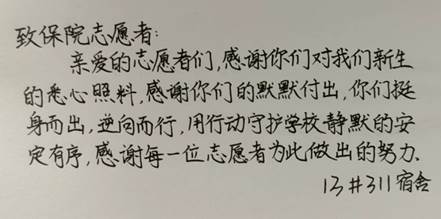 致保院志愿者:
亲爱的志愿者们,感谢你们对我们新生
的悉心照料,感谢你们的默默付出,你们挺
身而出,逆向而行,用行动守护学校静默的安
定有序,感谢每一位志愿者为此做出的努力.
13#311宿舍